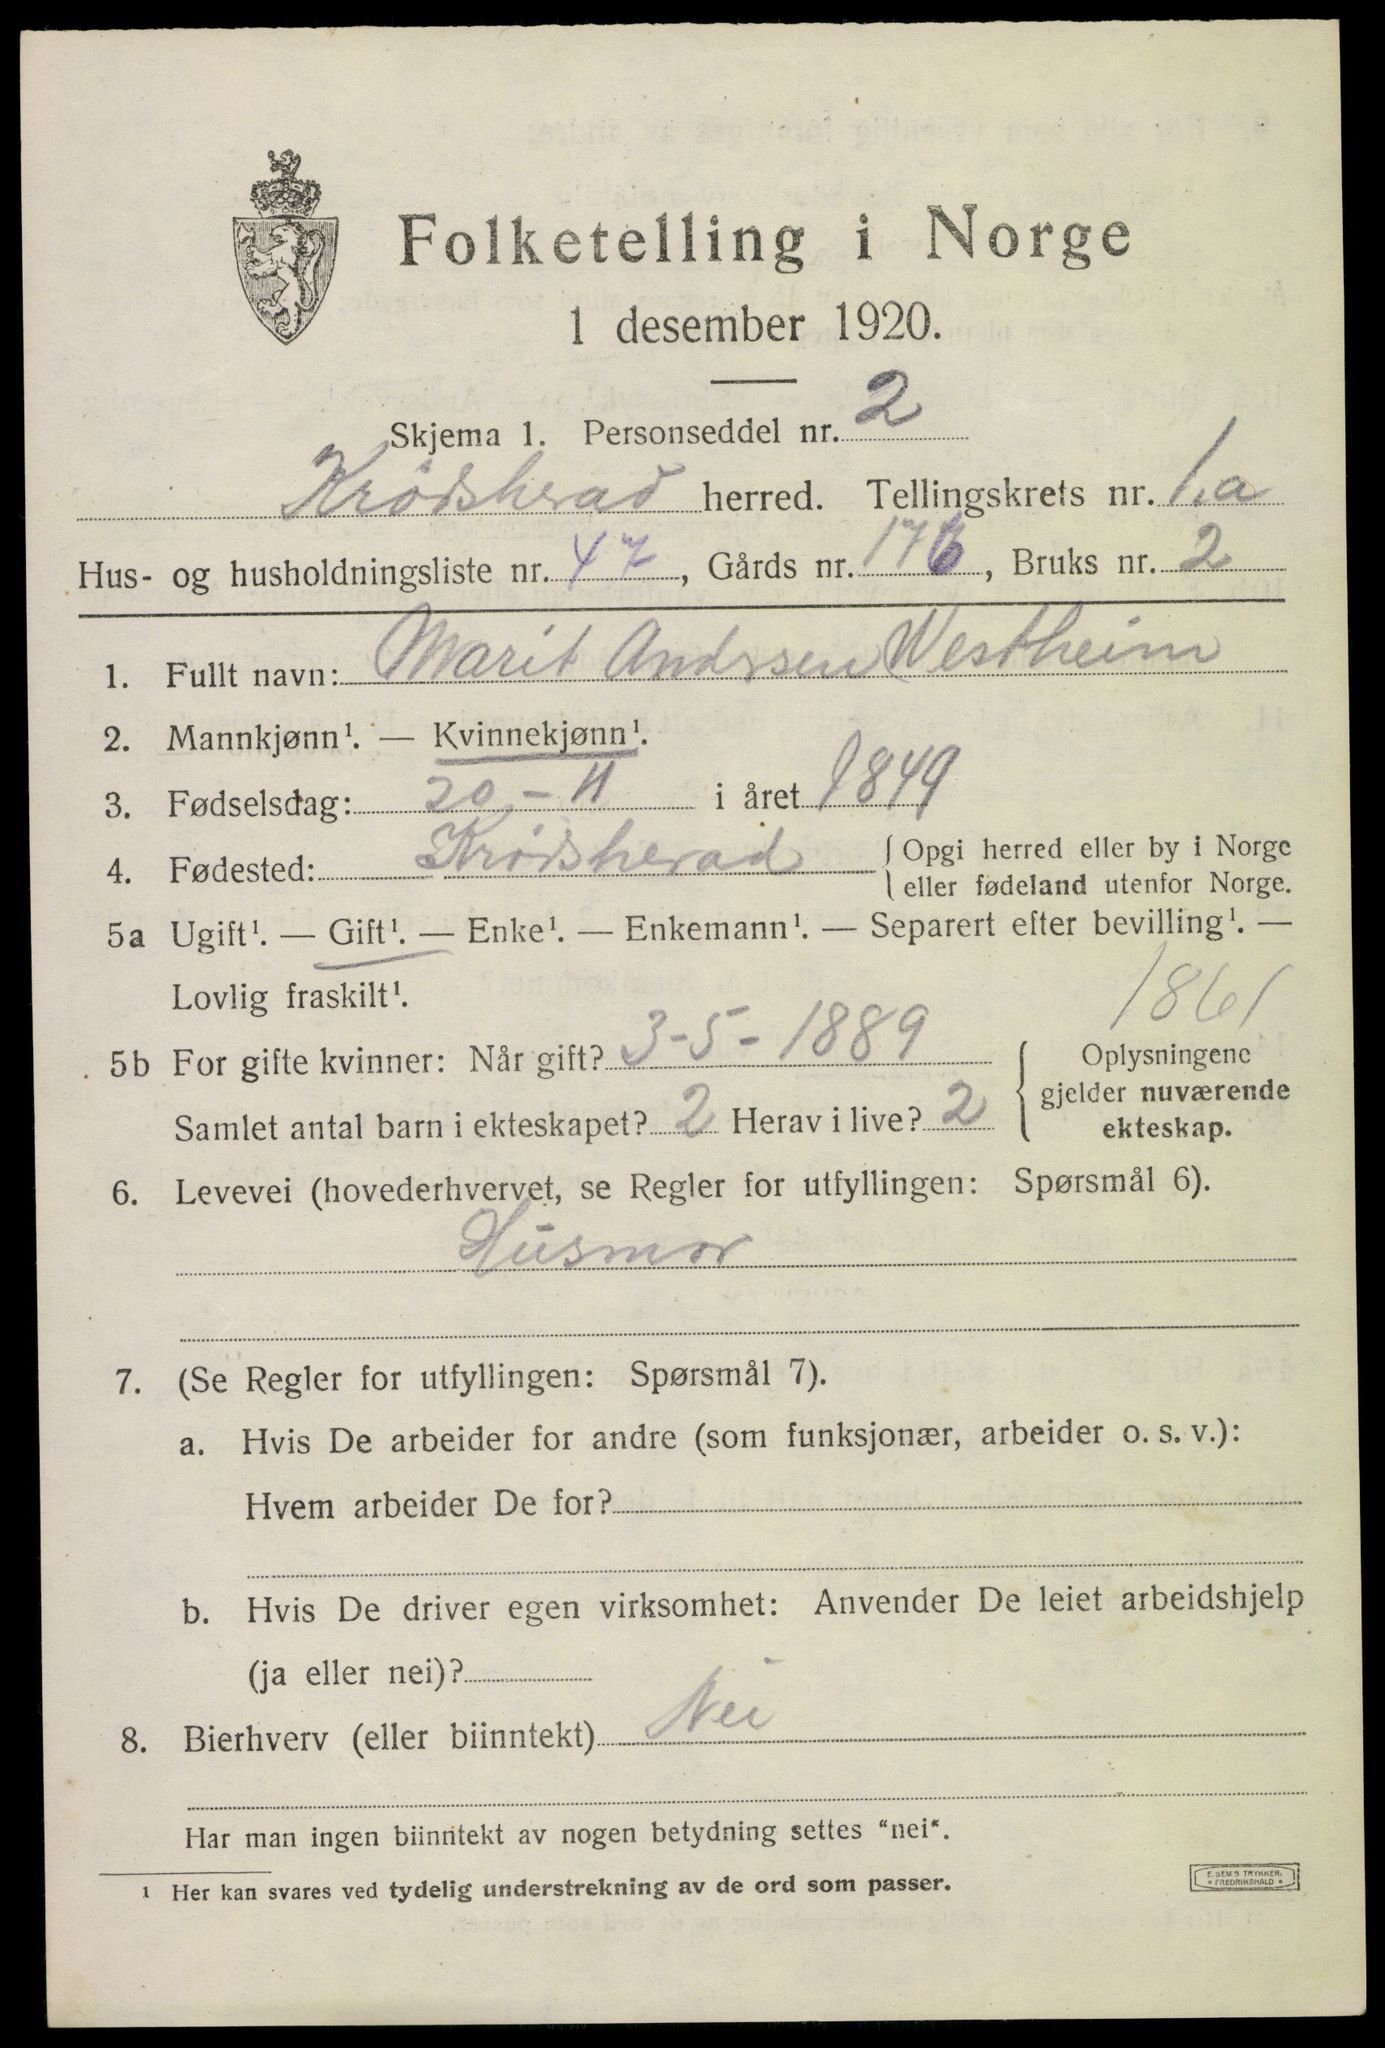 Folketelling i Norge
1 desember 1920.
Skjema 1. Personseddel nr. 2
Krødsherad herred. Tellingskrets nr. 1.a
Hus- og husholdningsliste nr. 47, Gårds nr. 176, Bruks nr. 2
1. Fullt navn: Marit Andrsen Westheim
2. Mannkjønn¹. — Kvinnekjønn¹.
3. Fødselsdag: 20 - 11 i året 1849
4. Fødested: Krødsherad { Opgi herred eller by i Norge
eller fødeland utenfor Norge.
5a Ugift¹. — Gift¹. — Enke¹. — Enkemann¹. — Separert efter bevilling¹. —
Lovlig fraskilt¹.
1861
5b For gifte kvinner: Når gift? 3-5-1889 { Oplysningene
gjelder nuværende
Samlet antal barn i ekteskapet? 2 Herav i live? 2
ekteskap.
6. Levevei (hovederhvervet, se Regler for utfyllingen: Spørsmål 6).
Husmor
7. (Se Regler for utfyllingen: Spørsmål 7).
a. Hvis De arbeider for andre (som funksjonær, arbeider o. s. v.):
Hvem arbeider De for?
b. Hvis De driver egen virksomhet: Anvender De leiet arbeidshjelp
(ja eller nei)?
8. Bierhverv (eller biinntekt) Nei
Har man ingen biinntekt av nogen betydning settes "nei".
¹ Her kan svares ved tydelig understrekning av de ord som passer.
E. SEM'S TRYKKERI
FREDRIKSHALD